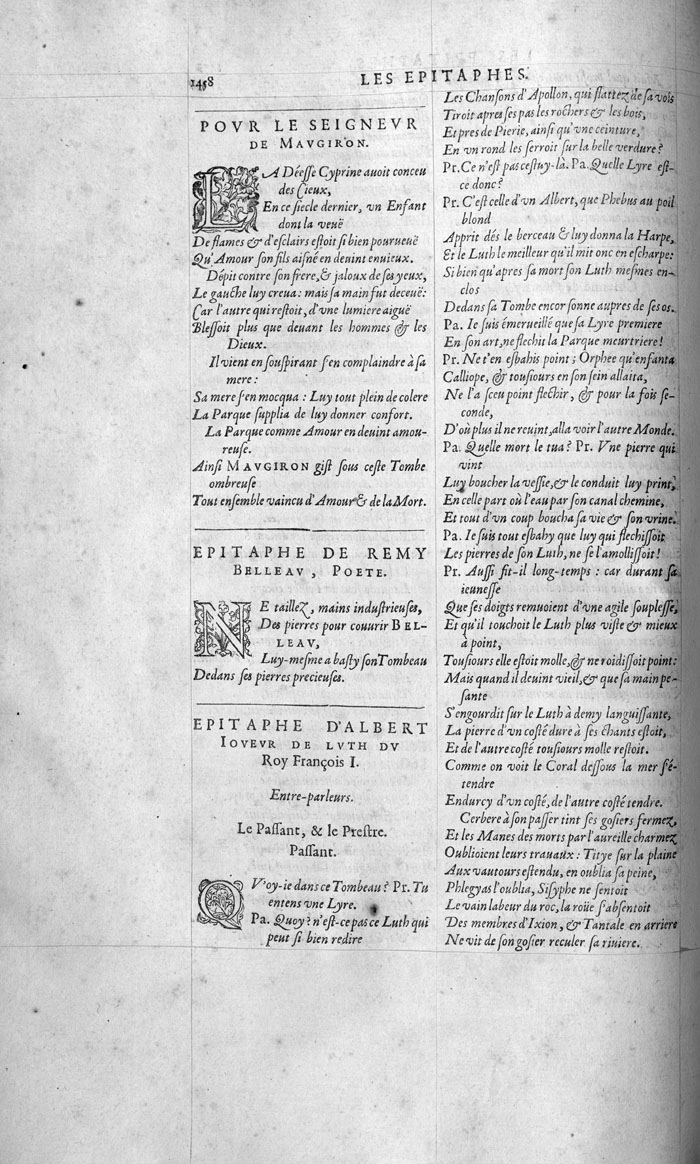 1458
LES EPITAPHES.
POVR LE SEIGNEVR
DE MAVGIRON.
LA Déesse Cyprine auoit conceu
des Cieux,
En ce siecle dernier, vn Enfant
dont la veuë
De flames & d'esclairs estoit si bien pourueuë
Qu'Amour son fils aisné en deuint enuieux.
Dépit contre son frere, & jaloux de ses yeux,
Le gauche luy creua: mais sa main fut deceuë:
Car l'autre qui restoit, d'vne lumiere aiguë
Blessoit plus que deuant les hommes & les
Dieux.
Il vient en souspirant s'en complaindre à sa
mere:
Sa mere s'en mocqua: Luy tout plein de colere
La Parque supplia de luy donner confort.
La Parque comme Amour en deuint amou-
reuse.
Ainsi MAVGIRON gist sous ceste Tombe
ombreuse
Tout ensemble vaincu d'Amour & de la Mort.
EPITAPHE DE REMY
BELLEAV, POETE.
NE taillez, mains industrieuses,
Des pierres pour couurir BEL-
LEAV,
Luy-mesme a basty son Tombeau
Dedans ses pierres precieuses.
EPITAPHE D'ALBERT
IOVEVR DE LVTH DV
Roy François I.
Entre-parleurs.
Le Passant, & le Prestre.
Passant.
QV'oy-ie dans ce Tombeau? Pr. Tu
entens vne Lyre.
Pa. Quoy? n'est-ce pas ce Luth qui
peut si bien redire
Les Chansons d'Apollon, qui flattez de sa vois
Tiroit apres ses pas les rochers & les bois,
Et pres de Pierie, ainsi qu'vne ceinture,
En vn rond les serroit sur la belle verdure?
Pr. Ce n'est pas cestuy-là. Pa. Quelle Lyre est-
ce donc?
Pr. C'est celle d'vn Albert, que Phebus au poil
blond
Apprit dés le berceau & luy donna la Harpe,
Et le Luth le meilleur qu'il mit onc en escharpe:
Si bien qu'apres sa mort son Luth mesmes en-
clos
Dedans sa Tombe encor sonne aupres de ses os.
Pa. Ie suis émerueillé que sa Lyre premiere
En son art, ne flechit la Parque meurtriere!
Pr. Ne t'en esbahis point; Orphee qu'enfanta
Calliope, & tousiours en son sein allaita,
Ne l'a sceu point flechir, & pour la fois se-
conde,
D'où plus il ne reuint, alla voir l'autre Monde.
Pa. Quelle mort le tua? Pr. Vne pierre qui
vint
Luy boucher la vessie, & le conduit luy print,
En celle part où l'eau par son canal chemine,
Et tout d'vn coup boucha sa vie & son vrine.
Pa. Ie suis tout esbahy que luy qui flechissoit
Les pierres de son Luth, ne se l'amollissoit!
Pr. Aussi fit-il long-temps: car durant sa
ieunesse
Que ses doigts remuoient d'vne agile souplesse,
Et qu'il touchoit le Luth plus viste & mieux
à point,
Tousiours elle estoit molle, & ne roidissoit point:
Mais quand il deuint vieil, & que sa main pe-
sante
S'engourdit sur le Luth à demy languissante,
La pierre d'vn costé dure à ses chants estoit,
Et de l'autre costé tousiours molle restoit.
Comme on voit le Coral dessous la mer s'é-
tendre
Endurcy d'vn costé, de l'autre costé tendre.
Cerbere à son passer tint ses gosiers fermez,
Et les Manes des morts par l'aureille charmez
Oublioient leurs trauaux: Titye sur la plaine
Aux vautours estendu, en oublia sa peine,
Phlegyas l'oublia, Sisyphe ne sentoit
Le vain labeur du roc, la roüe s'absentoit
Des membres d'Ixion, & Tantale en arriere
Ne vit de son gosier reculer sa riuiere.